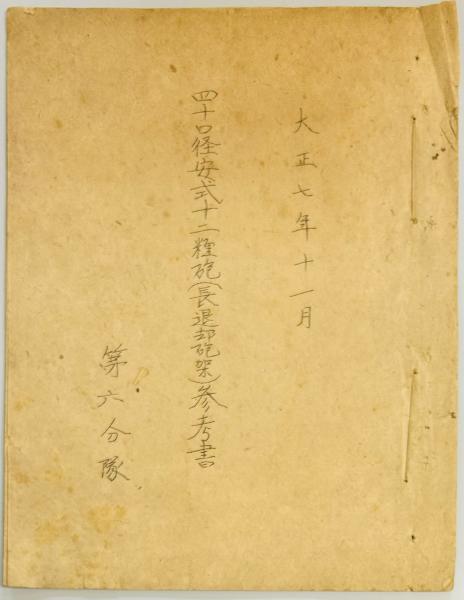 大正七年十一月
四十口径安式十二糎砲(長退却砲架)参考書
第六分隊